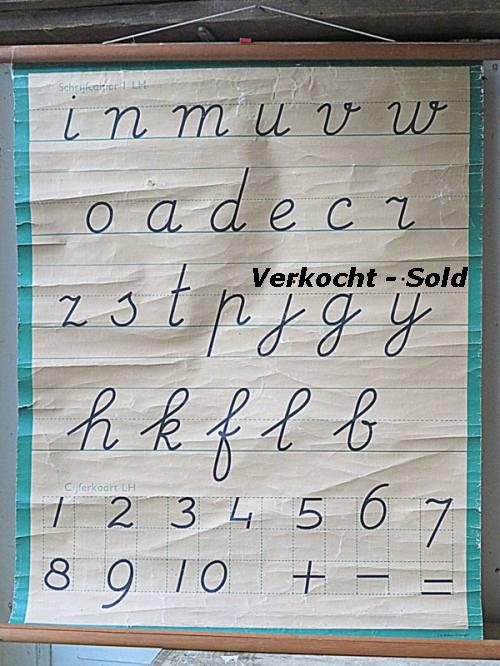 Schrijfkaart LH
i n m u v w
o a d e c r
Verkocht - Sold
z s t p j g y
h k f l b
Cijferkaart LH
1 2 3 4 5 6 7
8 9 10 + - =